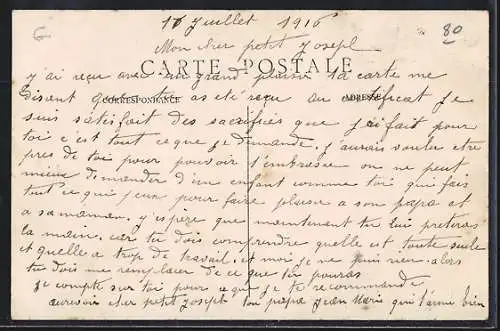 16 Juillet 1916
80
Mon cher petit Joseph
CARTE POSTALE
CORRESPONDANCE
ADRESSE
j'ai reçu avec un grand plaisir ta carte me
disent que tu as été reçu au certificat Je
suis satisfait des sacrifices que j'ai fait pour
toi c'est tout ce que je demande. j'aurais voulu etre
pres de toi pour pouvoir t'embrasse on ne peut
mieux demander d'un enfant comme toi qui fais
tout ce qui peux pour faire plaisir a son papa et
a sa maman. j'espère que maintenant tu lui preteras
la main. car tu dois comprendre quelle est toute seule
et quelle a trop de travail. et moi je ne puis rien. alors
tu dois me remplacer de ce que tu pouras
je compte sur toi pour ce que je te recommande
aurevoir cher petit Joseph ton papa Jean Marie qui t'aime bien